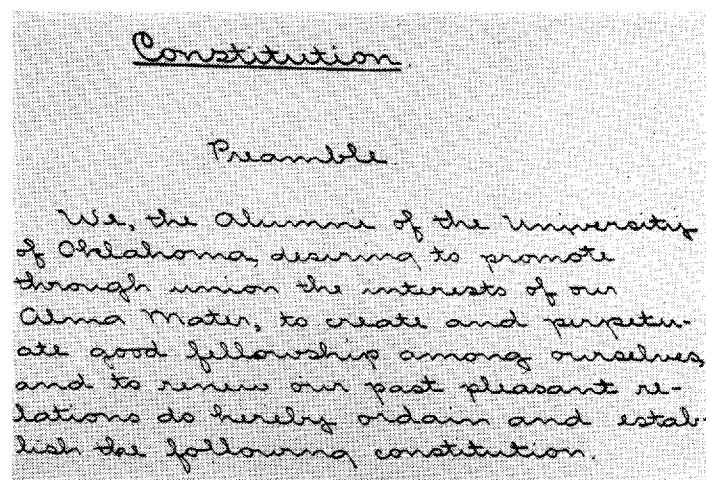 Constitution
Preamble
We, the Alumni of the University
of Oklahoma, desiring to promote
through union the interests of our
Alma Mater, to create and perpetu-
ate good fellowship among ourselves,
and to renew our past pleasant re-
lations do hereby ordain and estab-
lish the following constitution.